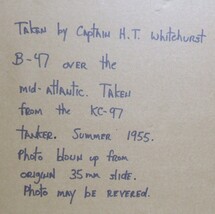 Taken by Captain H.T. Whitehurst
B-47 over the
mid-Atlantic. Taken
from the KC-97
tanker. Summer 1955.
Photo blown up from
original 35mm slide.
Photo may be revered.